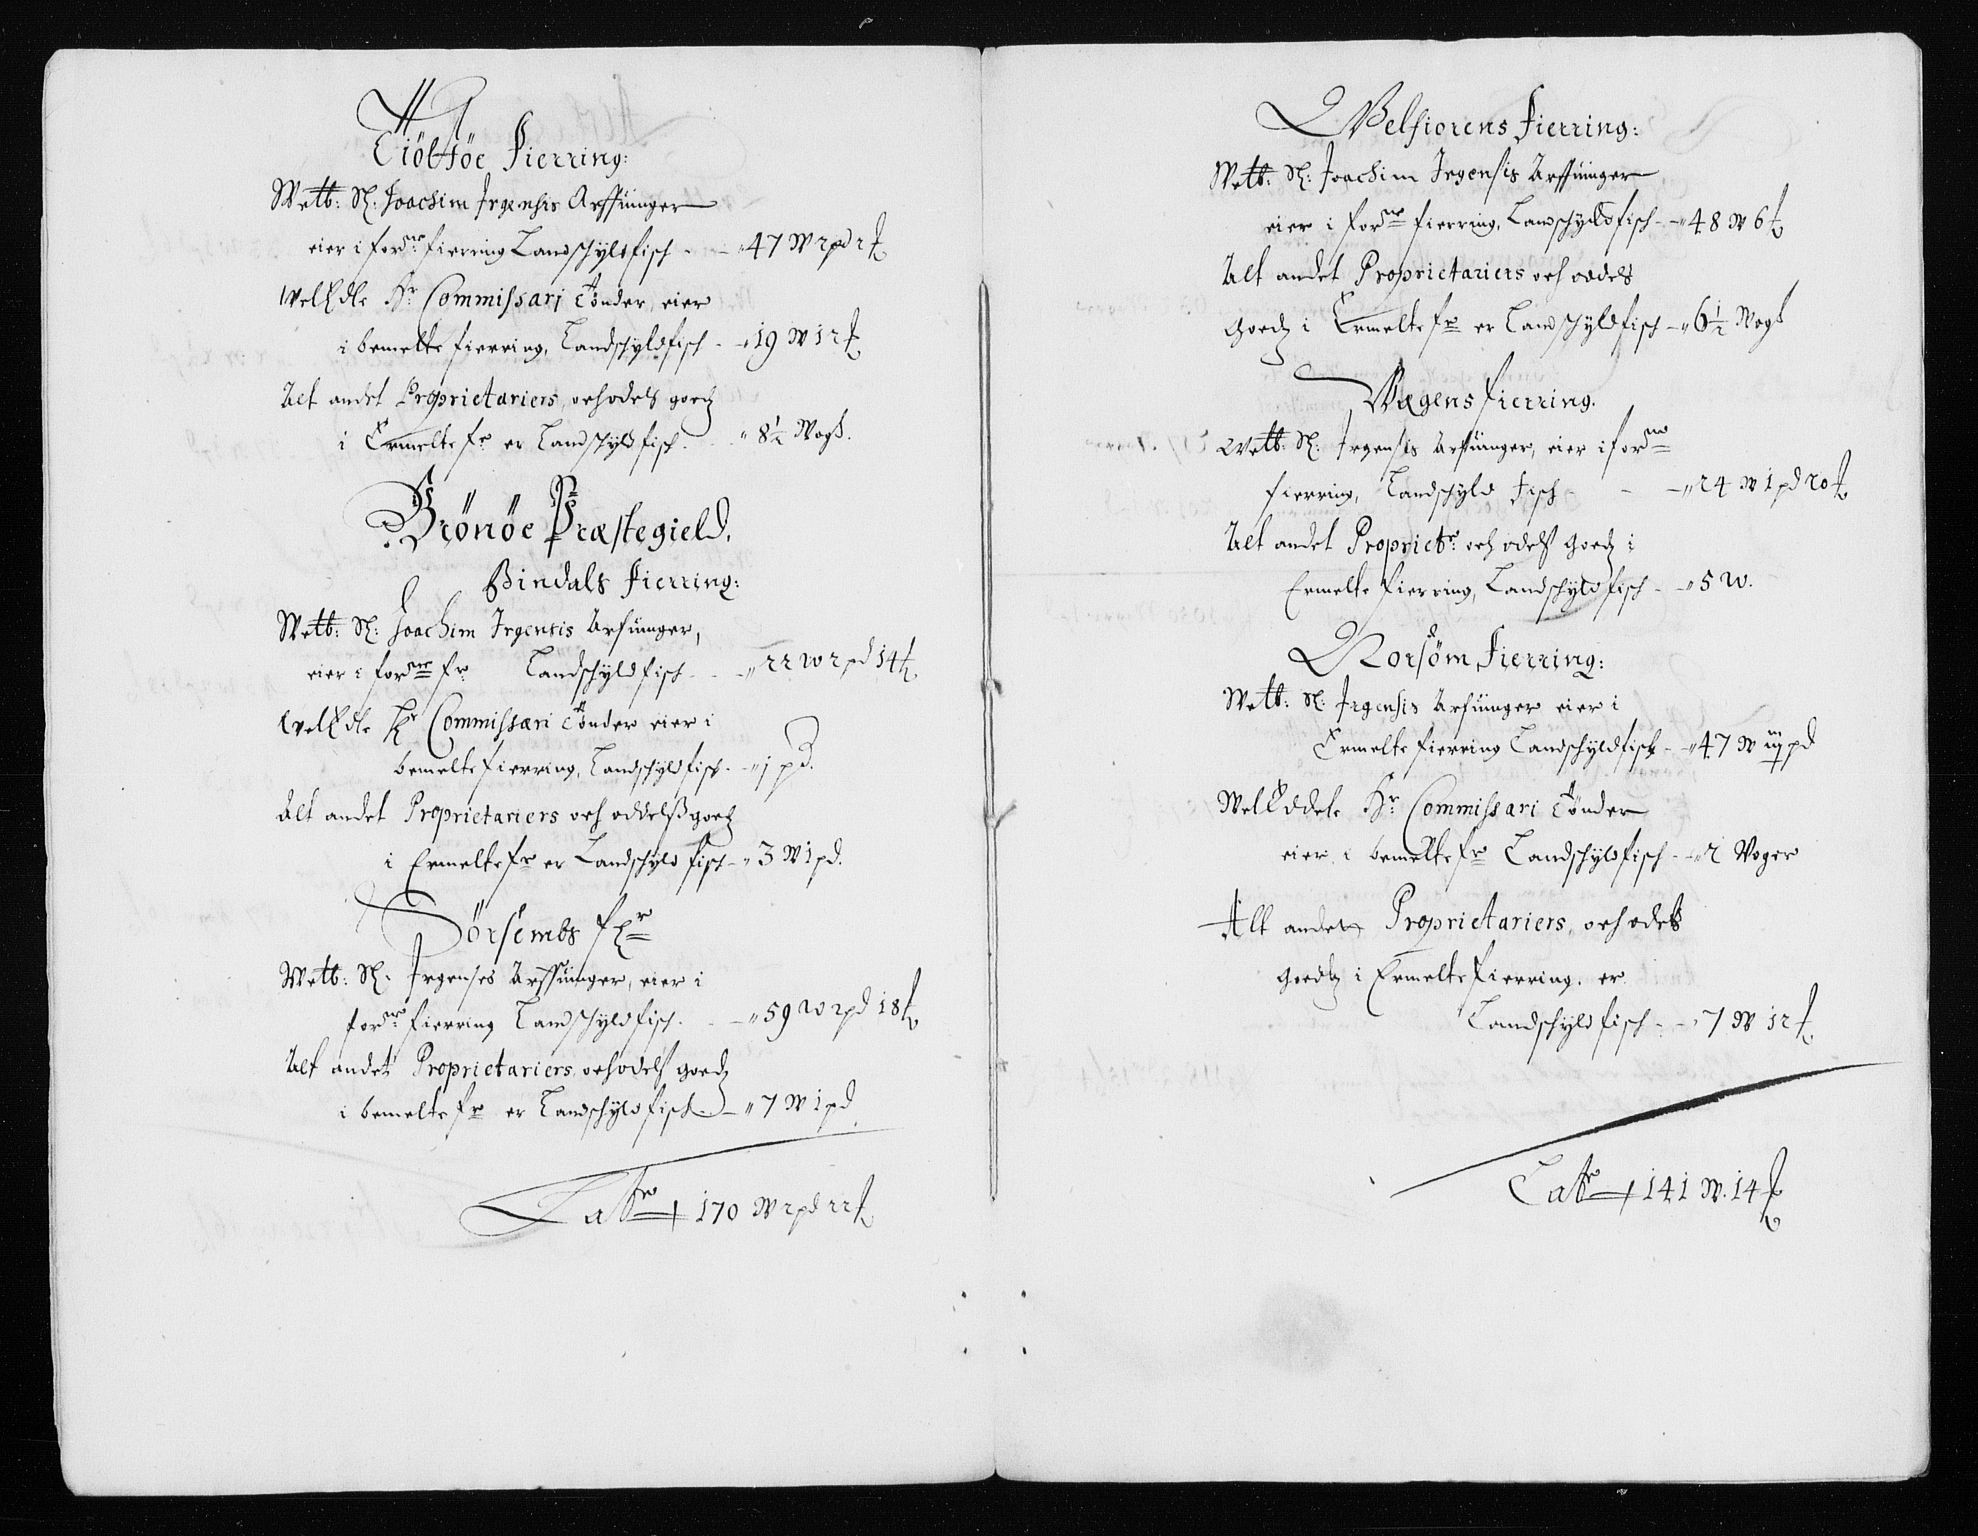 Tiöttöe Fierring:
Welb: Sl: Joachim Irgensis Arffuinger
eier i fordne fierring Landschyld fisch - - „47 W 2 pd 2 ℔
WelEdle Hr Commissari Tönder, eier
i bemelte fierring, Landschyldfisch - - „19 W 12 ℔
Alt andet Proprietariers, och odels goedz
i Ermelte fr er Landschyld fisch - - „8½ Wogß.
Brönöe Præstegield.
Bindals Fierring:
Welb: Sl: Joachim Irgensis Arfuinger,
eier i fordne fr Landschyldfisch - - „22 W 2 pd 14 ℔
WelEdle Hr Commissari Tönder eier i
bemelte fierring, Landschyldfisch - „j pd.
Alt andet Proprietariers och oddelß goetz
i Ermelte fr er Landschyld fisch - „3 W 1 pd.
Sörsembs fr
Welb: Sl: Irgenses Arffuinger, eier i
fordne fierring Landschyldfisch - - „59 W 2 pd 18 ℔
Alt andet Proprietariers, och odels goedz
i bemelte fr er Landschyldfisch - „7 W 1 pd
Latr 170 W 2 pd 22 ℔
Welfiorens Fierring:
Welb: Sl: Joachim Irgensis Arffuinger
eier i fordne fierring, Landschyldfisch - „48 W 6 ℔
Alt andet Proprietariers och oddels
Goedz i Ermelte fr er Landschyldfisch - „6½ Wogß
Wægens fierring.
Welb: Sl: Irgensis Arfuinger, eier i fordne
fierring, Landschyld fisch - - „24 W 1 pd 20 ℔
Alt andet Proprietr: och odelß Goedz i
Ermelte fierring, Landschyldfisch - „5 W.
Norsöm Fierring:
Welb: Sl: Irgensis Arfuinger eier i
Ermelte fierring Landschyldfisch - „47 W iij pd
WelEddele Hr Commissari Tönder
eier i bemelte fr Landschyldfisch - „2 Woger
Alt andet Proprietariers, och odels
goedtz i Ermelte fierring. er
Landschyldfisch - - „7 W 12 ℔
Latr 141 W. 14 ℔